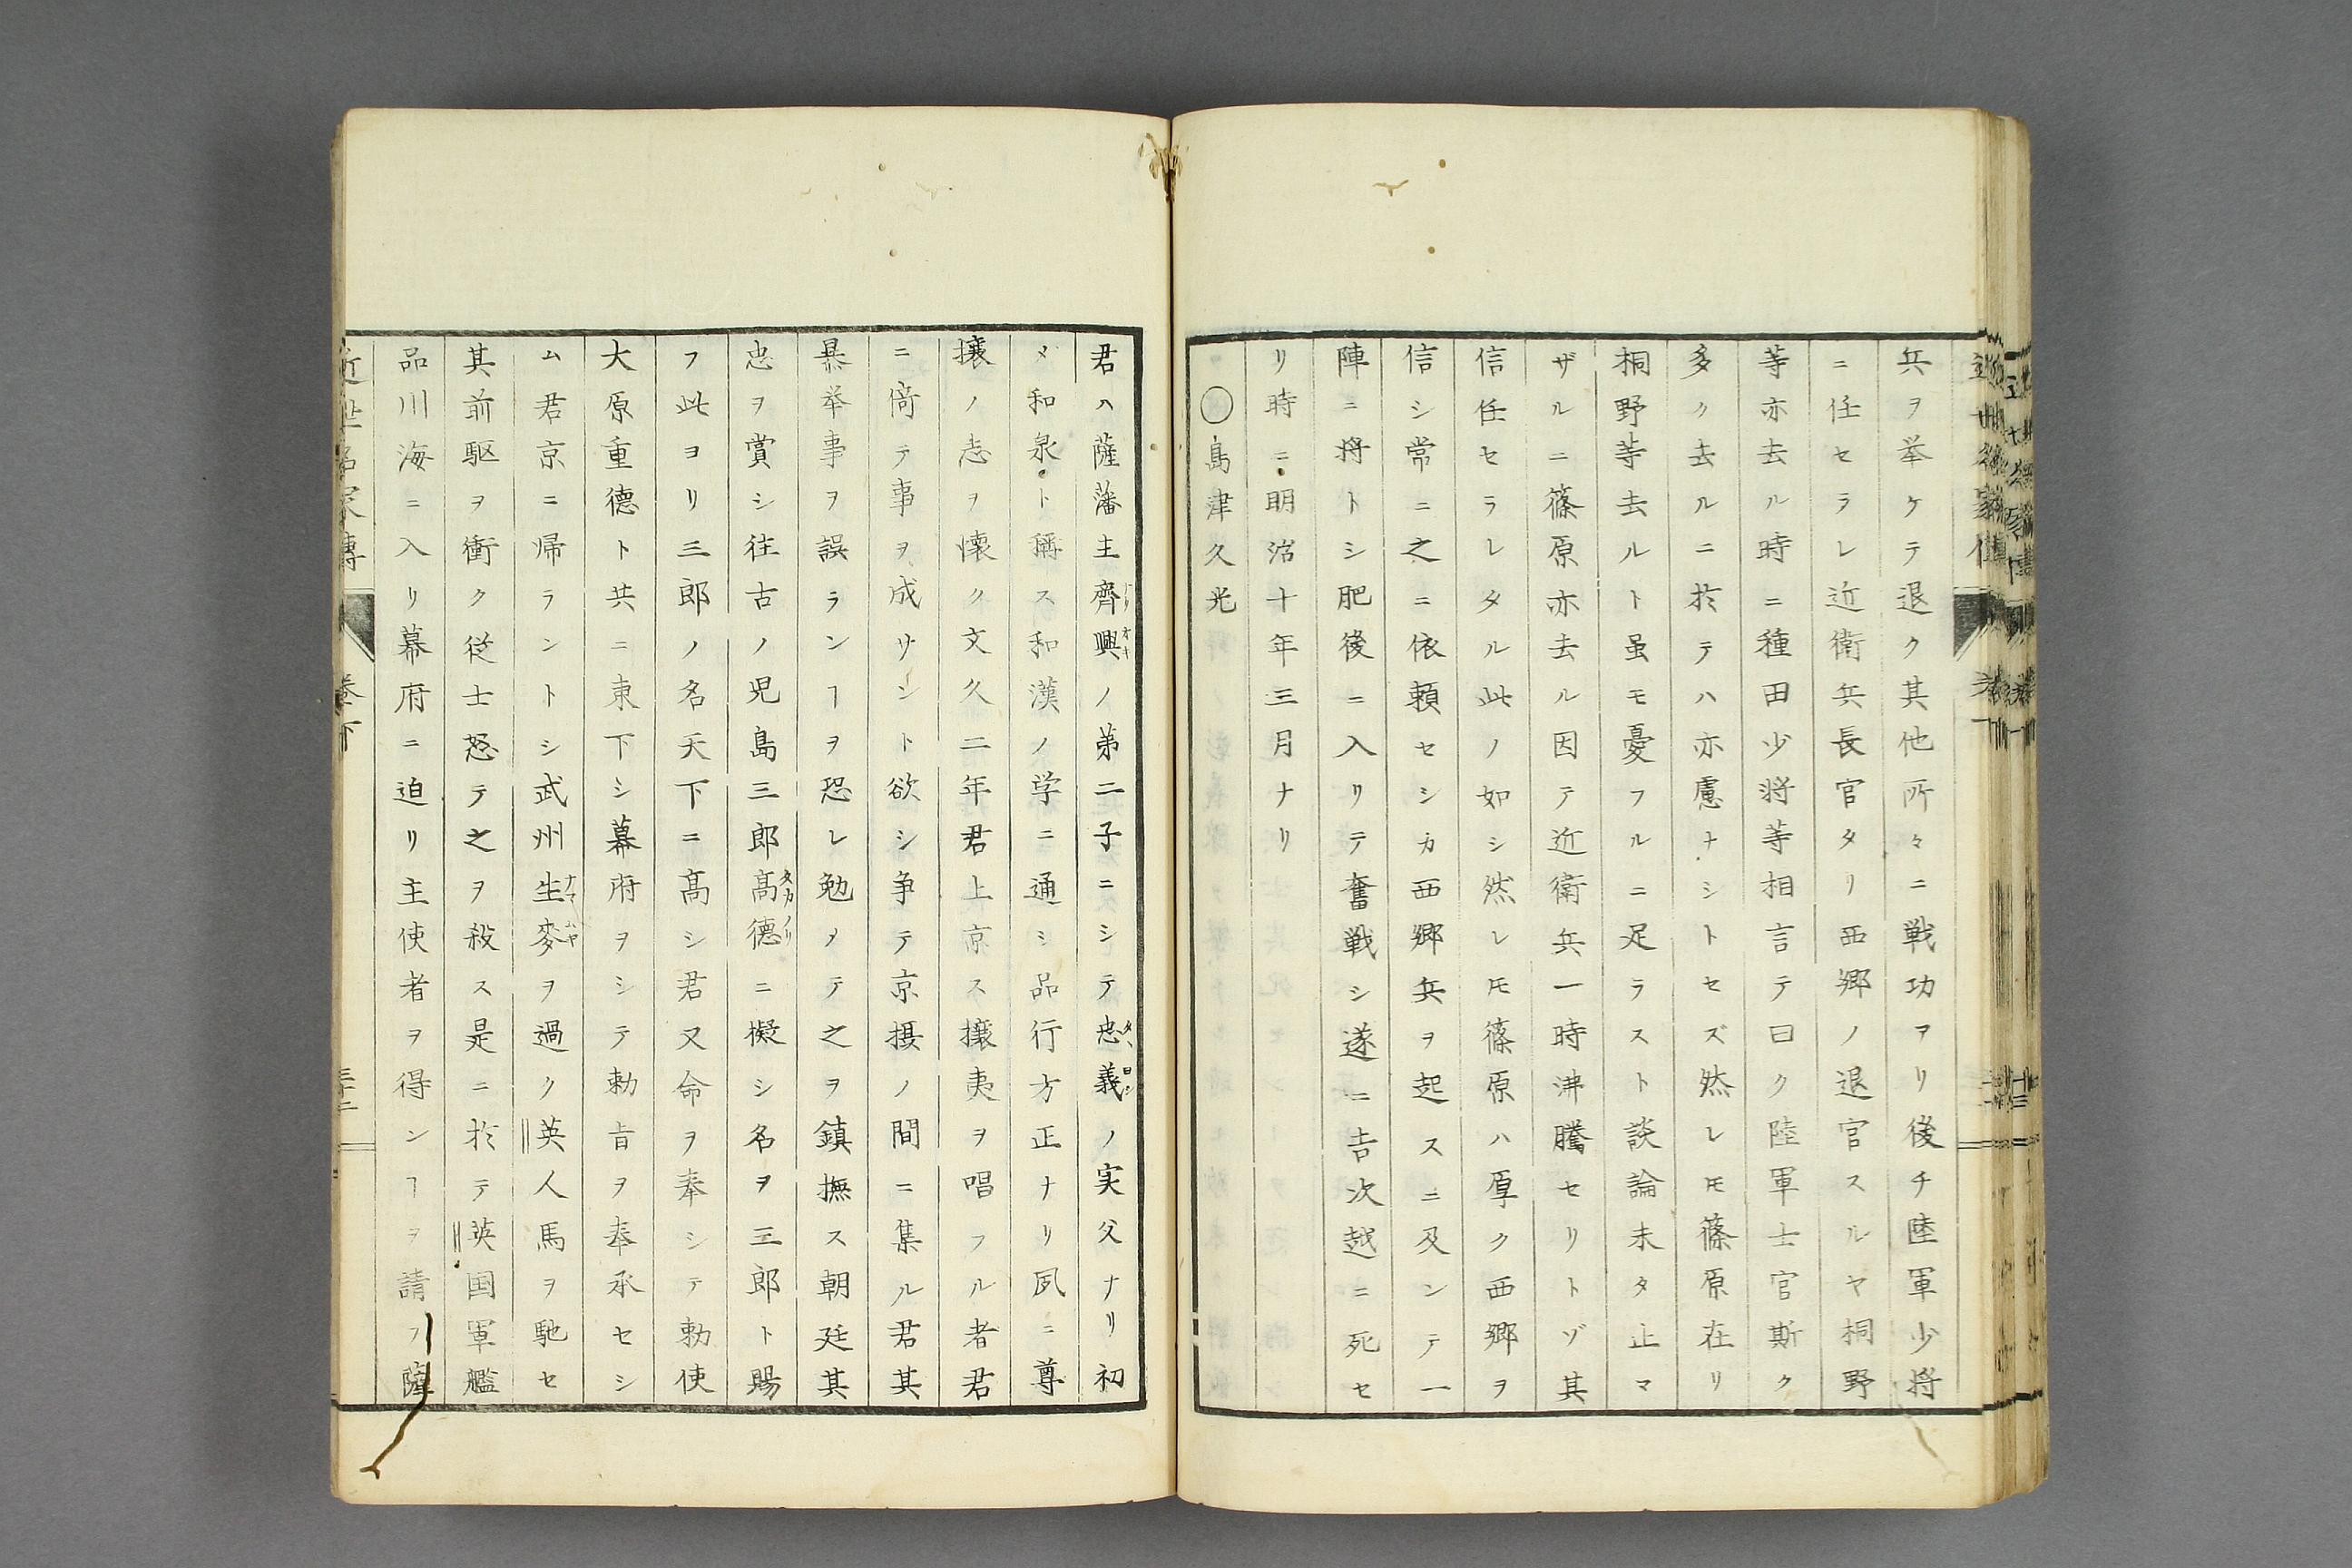 兵ヲ挙ケテ退ク其他所々ニ戦功アリ後チ陸軍少将
ニ任セラレ近衛兵長官タリ西郷ノ退官スルヤ桐野
等亦去ル時ニ種田少将等相言テ曰ク陸軍士官斯ク
多ク去ルニ於テハ亦慮ナシトセズ然レ𪜈篠原在リ
桐野等去ルト虽モ憂フルニ足ラスト談論未タ止マ
ザルニ篠原亦去ル因テ近衛兵一時沸騰セリトゾ其
信任セラレタル此ノ如シ然レ𪜈篠原ハ厚ク西郷ヲ
信シ常ニ之ニ依頼セシカ西郷兵ヲ起スニ及ンテ一
陣ニ将トシ肥後ニ入リテ奮戦シ遂ニ吉次越ニ死セ
リ時ニ明治十年三月ナリ
〇島津久光
君ハ薩藩主齊興ノ第二子ニシテ忠義ノ実父ナリ初
メ和泉ト稱ス和漢ノ学ニ通シ品行方正ナリ夙ニ尊
攘ノ志ヲ懐ク文久二年君上京ス攘夷ヲ唱フル者君
ニ倚テ事ヲ成サント欲シ争テ京摂ノ間ニ集ル君其
暴挙事ヲ誤ランヿヲ恐レ勉メテ之ヲ鎮撫ス朝廷其
忠ヲ賞シ往古ノ児島三郎高德ニ擬シ名ヲ三郎ト賜
フ此ヨリ三郎ノ名天下ニ高シ君又命ヲ奉シテ勅使
大原重德ト共ニ東下シ幕府ヲシテ勅旨ヲ奉承セシ
ム君京ニ帰ラントシ武州生麥ヲ過ク英人馬ヲ馳セ
其前駆ヲ衝ク従士怒テ之ヲ殺ス是ニ於テ英国軍艦
品川海ニ入リ幕府ニ迫リ主使者ヲ得ンヿヲ請フ薩
近世名家傳 巻下 三十二